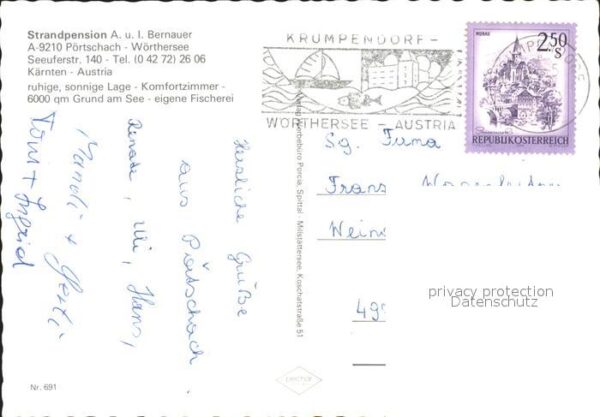 Strandpension A. u. I. Bernauer
A-9210 Pörtschach - Wörthersee
Seeuferstr. 140 - Tel. (0 42 72) 26 06
Kärnten - Austria
ruhige, sonnige Lage - Komfortzimmer -
6000 qm Grund am See - eigene Fischerei
Herzliche Grüße
aus Pörtschach
Renate, Uli, Hans,
Tom + Ingrid
Nr. 691
Spittal - Millstättersee, Koschatstraße 51
KRUMPENDORF-
WÖRTHERSEE - AUSTRIA
2.50
S
REPUBLIK ÖSTERREICH
Sg. Firma
Franz
privacy protection
Datenschutz